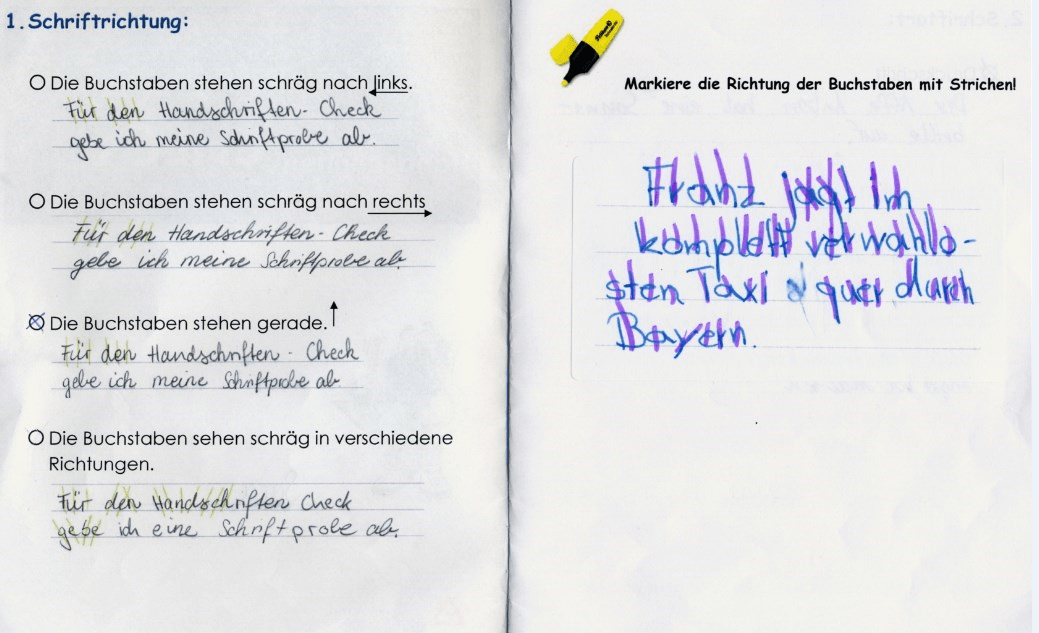 1. Schriftrichtung:
Die Buchstaben stehen schräg nach links.
Für den Handschriften- Check
gebe ich meine Schriftprobe ab.
Die Buchstaben stehen schräg nach rechts
Für den Handschriften- Check
gebe ich meine Schriftprobe ab.
Die Buchstaben stehen gerade.
Für den Handschriften - Check
gebe ich meine Schriftprobe ab
Die Buchstaben sehen schräg in verschiedene
Richtungen.
Für den Handschriften Check
gebe ich eine Schriftprobe ab.
Markiere die Richtung der Buchstaben mit Strichen!
Franz jagt im
komplett verwahlo-
sten Taxi quer durch
Bayern.